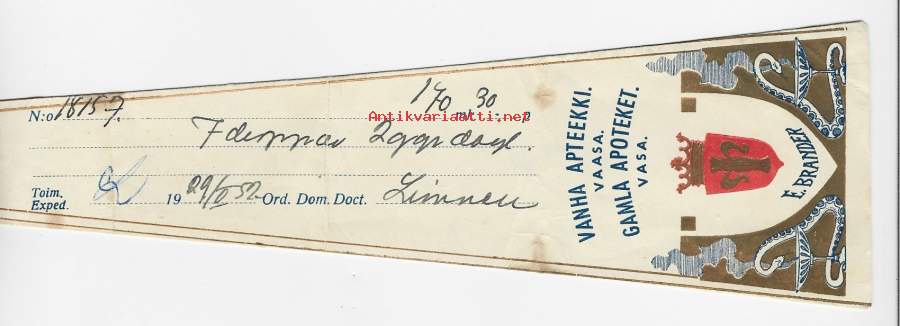 N:o 18157.
170 mk 30 p
Antikvariaatti.net
7 droppar 2 ggr dagl.
Toim.
Exped.
1929/V 52 Ord. Dom. Doct. Linnen
VANHA APTEEKKI.
VAASA.
GAMLA APOTEKET.
VASA.
E. BRANDER